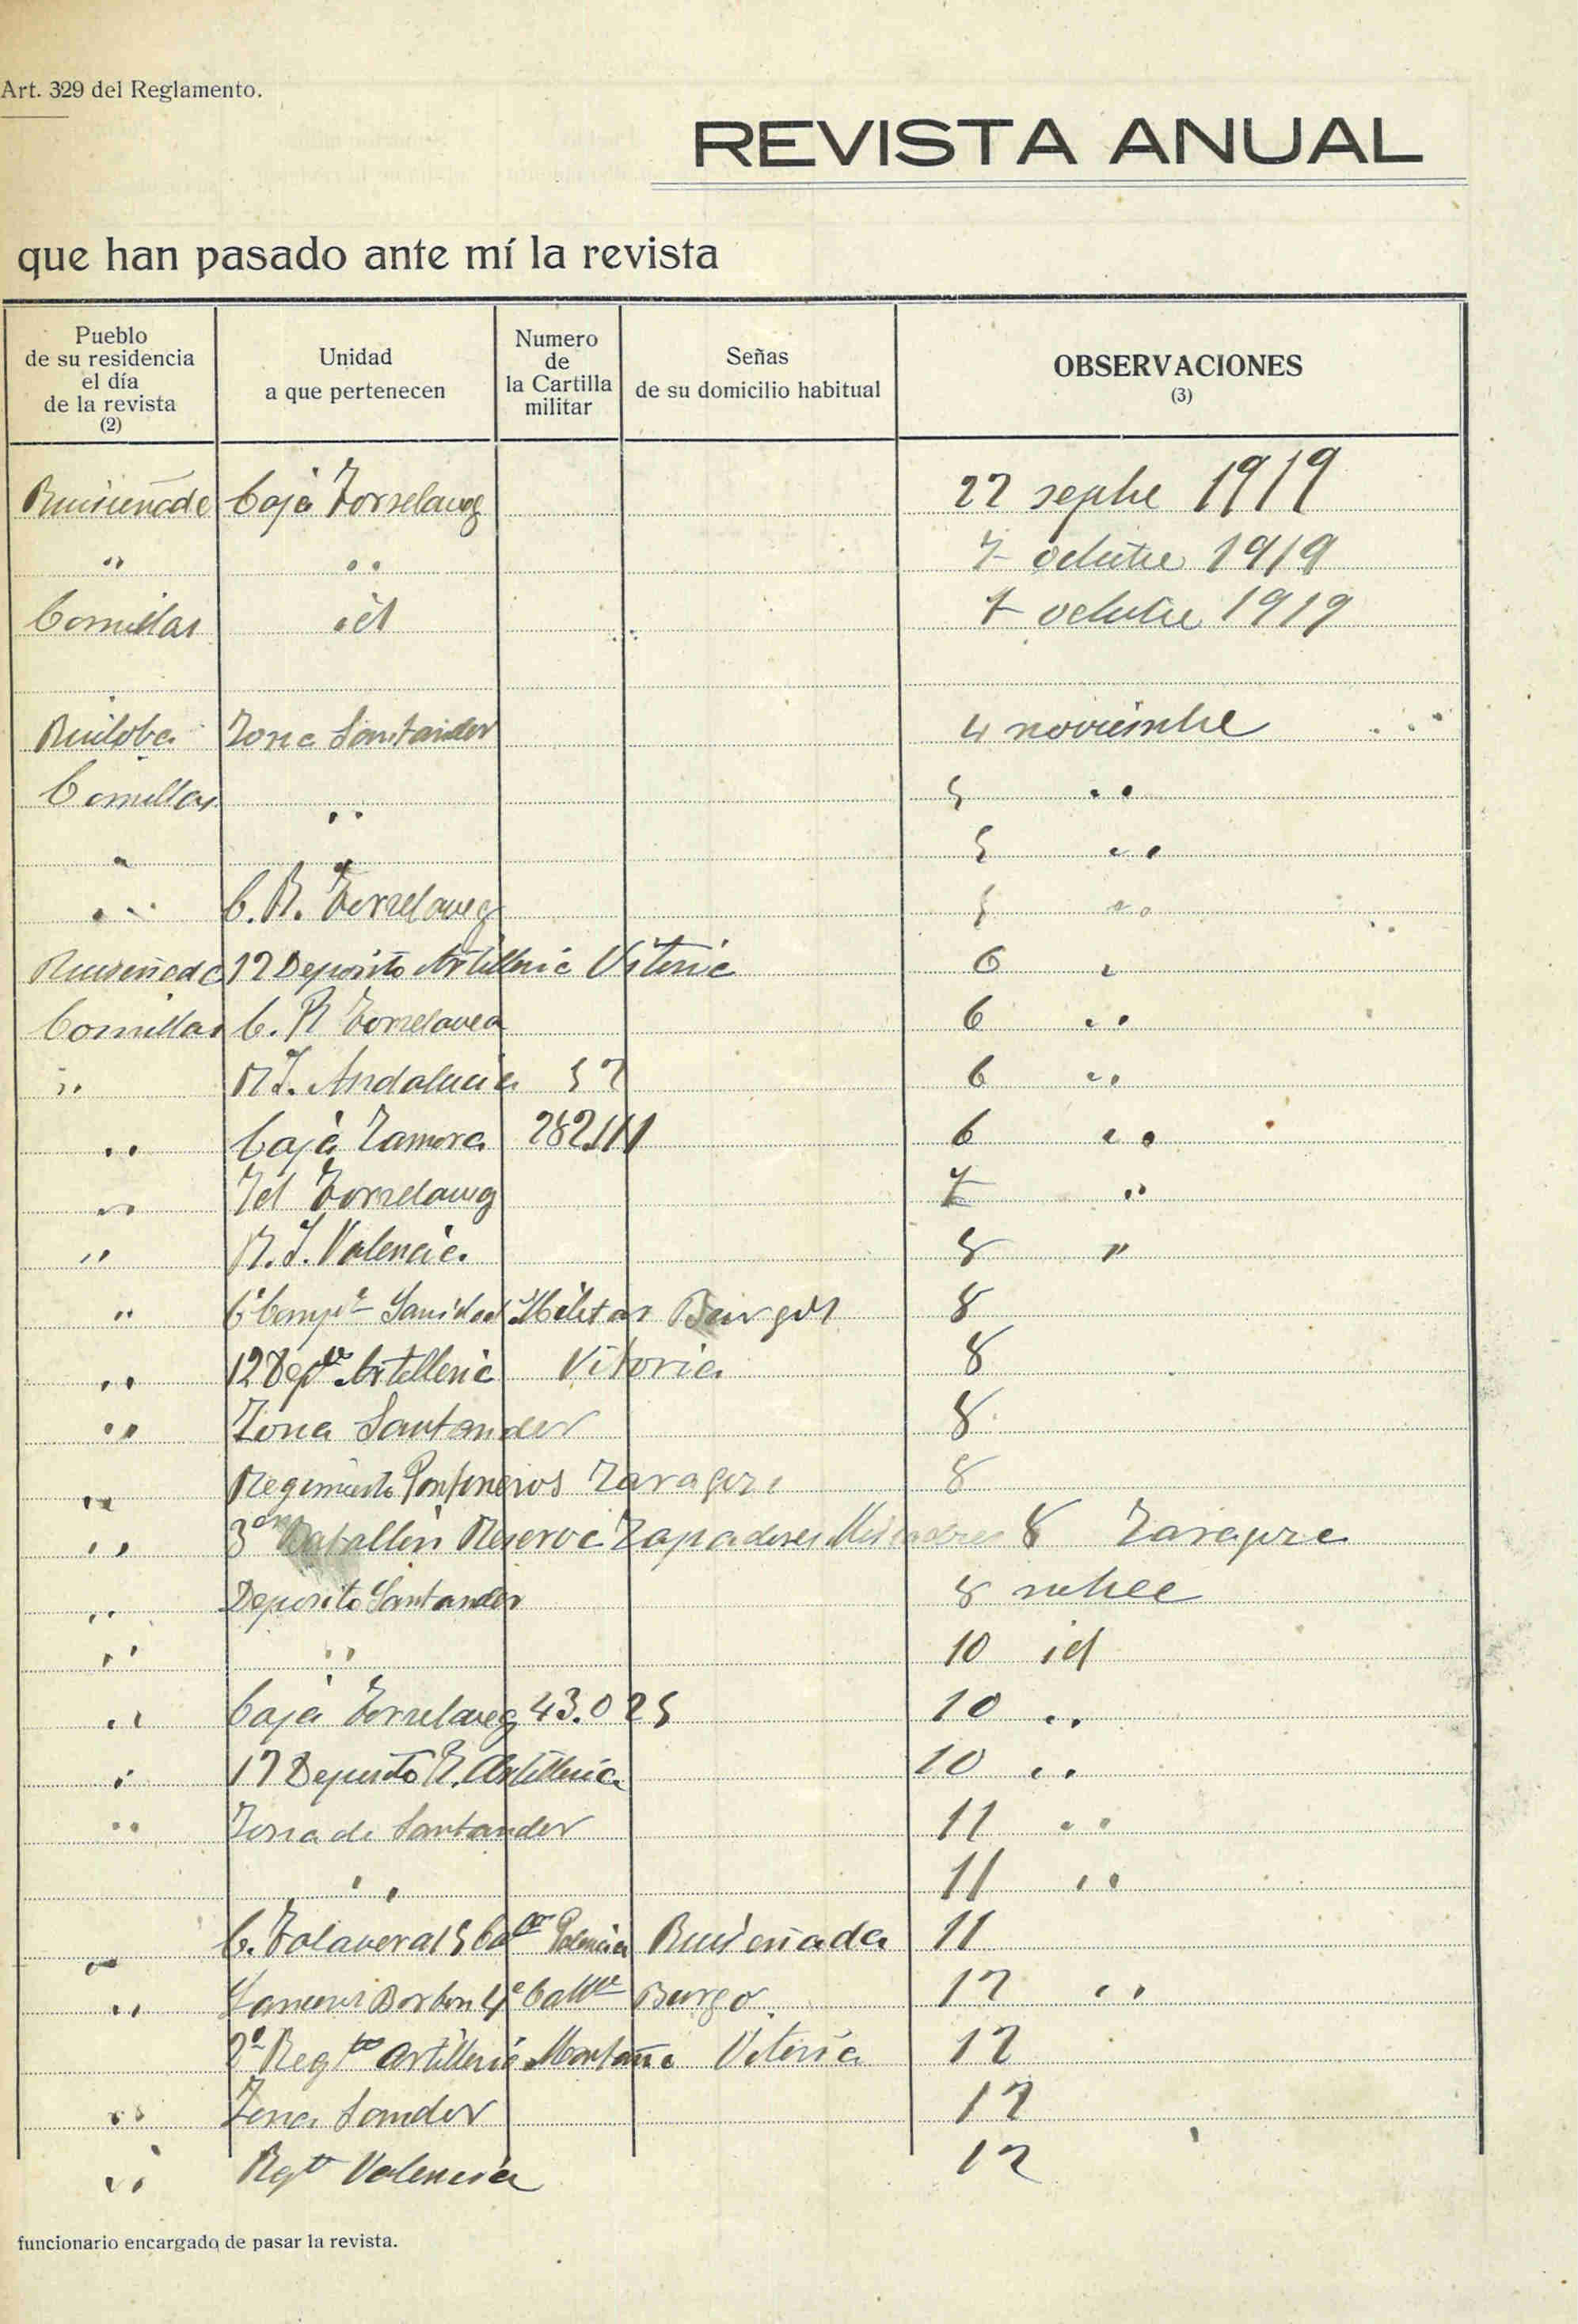 Art. 329 del Reglamento.
REVISTA ANUAL
que han pasado ante mí la revista
Pueblo
de su residencia
el día
de la revista
(2)
Unidad
a que pertenecen
Numero
de
la Cartilla
militar
Señas
de su domicilio habitual
OBSERVACIONES
(3)
Ruiseñada Caja Torrelaveg 22 sepbre 1919
" " 7 octubre 1919
Comillas id 7 octubre 1919
Ruiloba Zona Santander 4 noviembre
Comillas " 5 "
" " 5 "
" C. R. Torrelaveg 5 "
Ruiseñada 12 Deposito Artilleria Vitoria 6 "
Comillas C. R Torrelavea 6 "
" R I. Andalucia 52 6 "
" Caja Zamora 282111 6 "
" Id Torrelaveg 7 "
" R. I. Valencia 8 "
" 6ª Compª Sanidad Militar Burgos 8
" 12 Depto Artilleria Vitoria 8
" Zona Santander 8
" Regimiento Pontoneros Zaragoza 8
" 3er Batallón Reserva Zapadores Minadores 8 Zaragoza
" Deposito Santander 8 nbre
" " 10 id
" Caja Torrelaveg 43.025 10 "
" 12 Deposito R. Artilleria 10 "
" Zona de Santander 11 "
" 11 "
" C. Talavera 15 Cabria Palencia Ruiseñada 11
" Lanceros Borbon 4º Caballe Burgo 12 "
2º Regto Artilleria Montaña Vitoria 12
" Zona Sander 12
" Regto Valencia 12
funcionario encargado de pasar la revista.